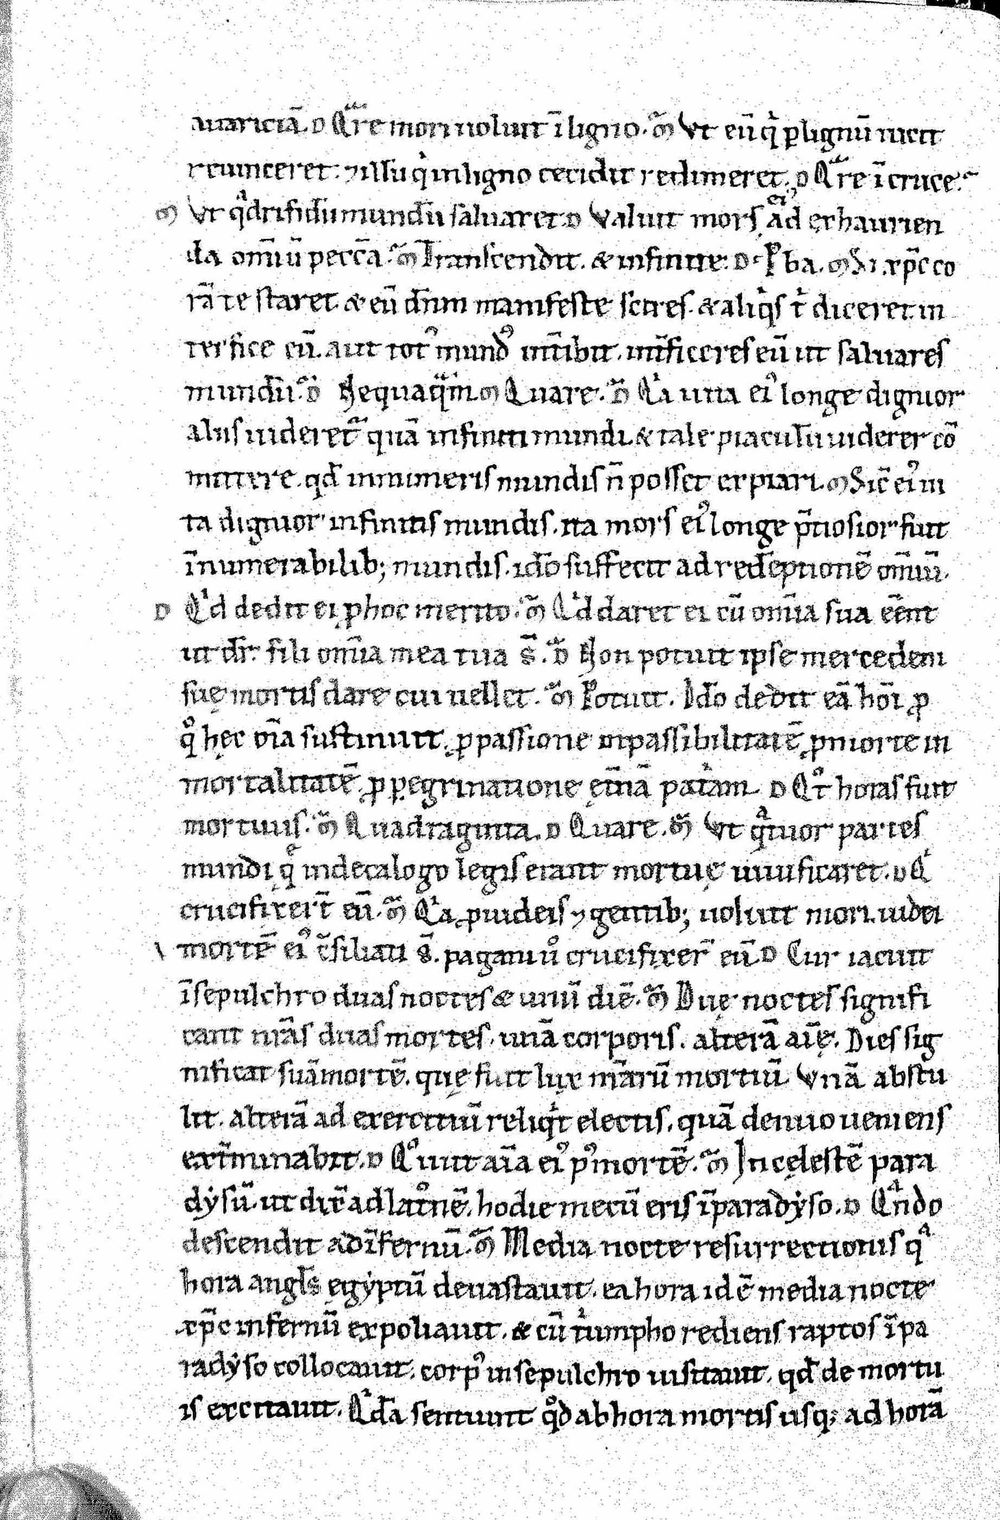 auariciā. D Q̄re mori uoluit ī ligno. M̄ Vt eū q̇ p̱ lignū uicit
reuinceret. ⁊ illū q̇ in ligno cecidit redimeret. D Q̄re ī cruce.
M̄ Vt qͣdrifidū mundū saluaret. D Valuit mors ei᾿ ad exhaurien
da om̄iū pecc̄a. M̄ Transcendit. & infinite. D Pba. M̄ Si xp̄c co
rā te staret & eū dn̄m manifeste scires. & aliq̇s t̄ diceret in
terfice eū. aut tot᾿ mund᾿ int̄ibit. int̄ficeres eū ut saluares
mundū. D̄ Nequaqͣm. M̄ Quare. D̄ Qͥa uita ei᾿ longe dignior
aliis uideret᷑ quā infiniti mundi. & tale piaculū uiderer cō
mittere. qd̄ innumeris mundis n̄ posset expiari. M̄ Sic̄ ei᾿ ui
ta dignior infinitis mundis. ita mors ei᾿ longe p̄tiosior fuit
īnumerabilib; mundis. idō suffecit ad redēptionē om̄iū.
D Qͥd dedit ei p̱ hoc merito. M̄ Qͥd daret ei cū om̄ia sua eēnt
ut dr̄. fili om̄ia mea tua s̄. D̄ Non potuit ipse mercedem
suę mortis dare cui uellet. M̄ Potuit. Idō dedit eā hōi ꝓ
qͦ hęc oīa sustinuit. ꝓ passione inpassibilitatē ꝓ morte in
mortalitatē. ꝓ p̱egrinatione et̄nā pat̄am. D Qͦt horas fuit
mortuus. M̄ Quadraginta. D Quare. M̄ Vt qͣtuor partes
mundi q̄ in decalogo legis erant mortuę uiuificaret. D Qͥ
crucifixer̄t eū. M̄ Qͥa ꝓ iudeis ⁊ gentib; uoluit mori. iudei
mortē ei᾿ c̄siliati s̄. pagani ů crucifixer̄ eū. D Cur iacuit
ī sepulchro duas noctes & unū diē. M̄ Due noctes signifi
cant nr̄as duas mortes. unā corporis. alterā aīę. Dies sig
nificat suā mortē. quę fuit lux nr̄arū mortiū. Vnā abstu
lit. alterā ad exercitiū reliq̇t electis. quā denuo ueniens
ext̄minabit. D Qͦ iuit aīa ei᾿ p᾿ mortē. M̄ In celestē para
dysū. ut dix̄ ad latͦnē. hodie mecū eris ī paradyso. D Qͣndo
descendit ad īfernū. M̄ Media nocte resurrectionis qͣ
hora angl̄s egyptū deuastauit. ea hora id ē media nocte
xp̄c infernū expoliauit. & cū t̄umpho rediens raptos ī pa
radyso collocauit. corp᾿ in sepulchro uisitauit. qd̄ de mortu
is excitauit. Qͥdā sentiunt qͦd ab hora mortis usq; ad horā